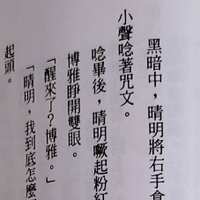 黑暗中，晴明將右手食
小聲唸著咒文。
唸畢後，晴明噘起粉紅
博雅睜開雙眼。
「醒來了？博雅。」
「晴明，我到底怎麼
起頭。